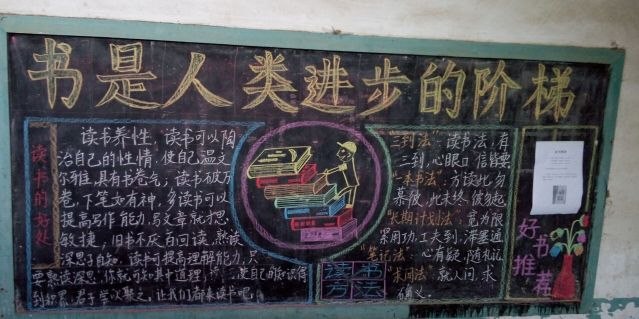 书是人类进步的阶梯
读书的好处
读书养性，读书可以陶
冶自己的性情，使自己温文
尔雅，具有书卷气；读书破万
卷，下笔如有神，多读书可以
提高写作能力，写文章就才思
敏捷；旧书不厌百回读，熟读
深思子自知，读书可以提高理解能力，只
要熟读深思，你就可以知其中道理
使自己的知识得
到积累，君子学以聚之。让我们都来读书吧！
读书
方法
"三到法"：读书法，有
三到，心眼口信皆要
"一本书法"：方读此，勿
慕彼，此未终，彼勿起
"长期计划法"：宽为限
紧用功，工夫到，滞塞通
"笔记法"：心有疑，随札记
"求问法"：就人问，求
确义。
好书
推荐